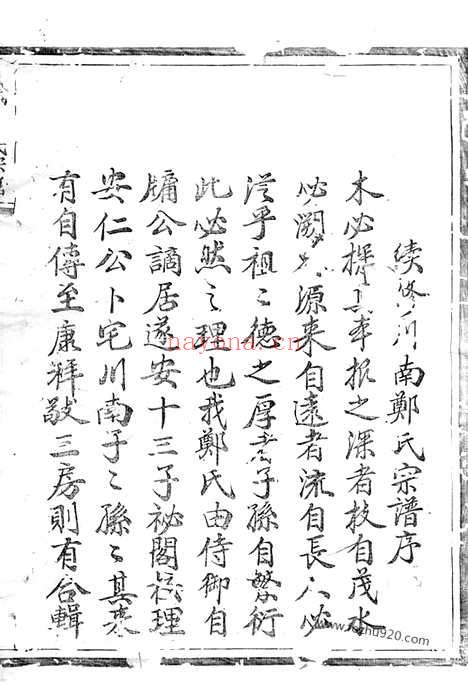 續修川南鄭氏宗譜序
木必探其本根之深者枝自茂水
必溯其源来自遠者流自長人必
從乎祖〻德之厚者子孫自繁衍
此必然之理也我鄭氏由侍御自
牗公謫居遂安十三子祕閣𥙿理
安仁公卜宅川南子〻孫〻其来
有自傳至康祥敬三房則有合輯
nayona.cn
kezhu920.com